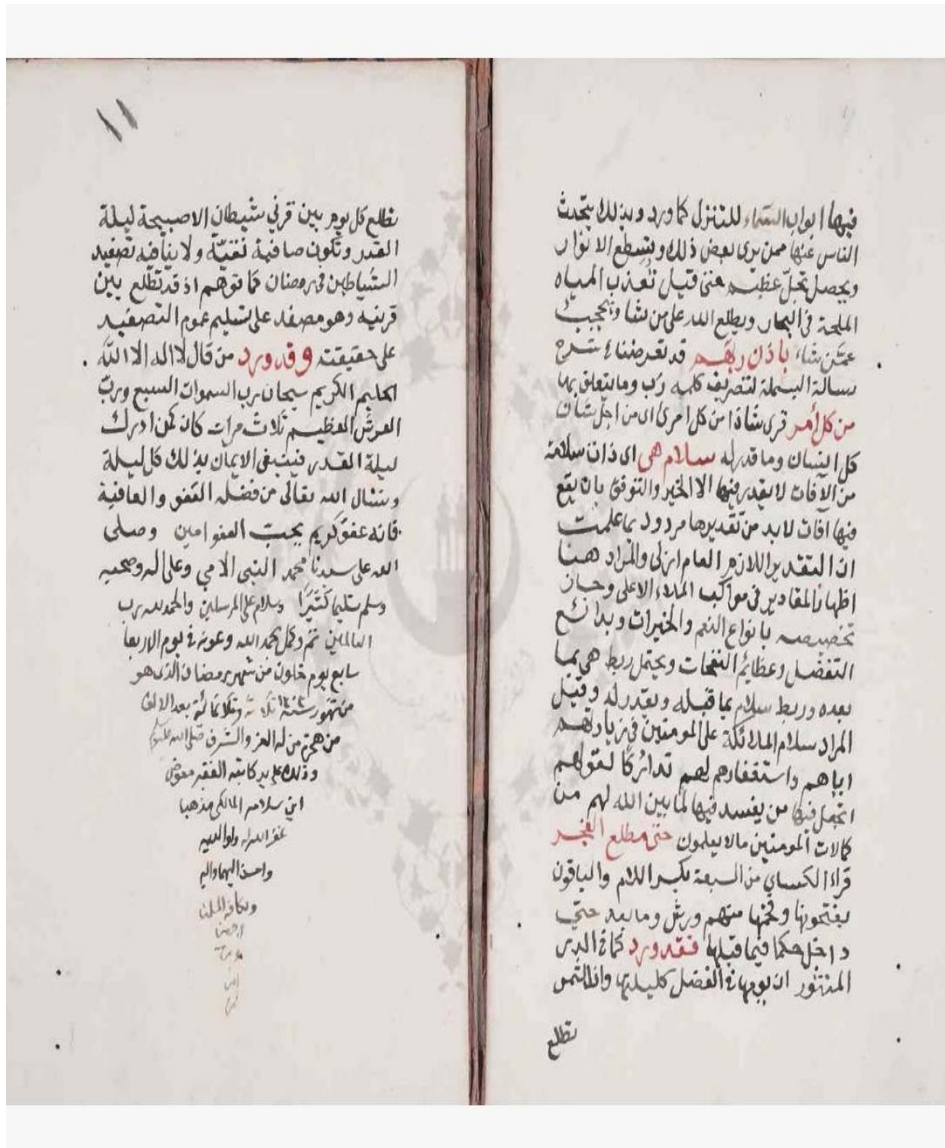 فيها ابواب السماء للتنزل كما ورد وبذلك يتحدث
الناس عنها ممن يرى بعض ذلك وتسطع الانوار
ويحصل تجل عظيم حتى قيل تعذب المياه
الملحة في البحار ويطلع الله على من شا ويحجب
عمن شاء باذن ربهم قد تعرضنا في شرح
رسالة البسملة لتصريف كلمة رب وما يتعلق بها
من كل أمر قرى شاذا من كل امرئ اى من اجل شان
كل انسان وما قدر له سلام هى اى ذات سلامة
من الآفات لا يقدر فيها الا الخير والتوفيق بان يقع
فيها افات لابد من تقديرها مردود بما علمت
ان التقدير اللازم العام ازلى والمراد هنا
اظهار المقادير في مواكب الملاء الاعلى وحان
تخصيصه بانواع النعم والخيرات وبدائع
التفضل وعظائم النفحات ويحتمل ربط هى بما
بعده وربط سلام بما قبله ويقدر له وقيل
المراد سلام الملائكة على المومنين في زيارتهم
اياهم واستغفارهم لهم تداركا لقولهم
اتجعل فيها من يفسد فيها لما بين الله لهم من
كمالات المومنين ما لا يعلمون حتى مطلع الفجر
قراءة الكساي من السبعة بكسر اللام والباقون
يفتحونها وفخمها منهم ورش وما بعد حتى
داخل حكما فيما قبلها فقد ورد كما في الدر
المنثور ان يومها في الفضل كليلتها وان الشمس
تطلع
١١
تطلع كل يوم بين قرني شيطان الا صبيحة ليلة
القدر وتكون صافية نقية ولا ينافيه تصفيد
الشياطين في رمضان كما توهم اذ قد تطلع بين
قرنيه وهو مصفد على تسليم عموم التصفيد
على حقيقته وقد ورد من قال لا اله الا الله
الحليم الكريم سبحان رب السموات السبع ورب
العرش العظيم ثلاث مرات كان كمن ادرك
ليلة القدر فينبغى الاتيان بذلك كل ليلة
ونسئال الله تعالى من فضله العفو والعافية
فانه عفو كريم يحب العفو امين وصلى
الله على سيدنا محمد النبى الامي وعلى اله وصحبه
وسلم تسليما كثيرًا وسلام على المرسلين والحمد لله رب
العالمين تم وكمل بحمد الله وعونه في يوم الاربعا
سابع يوم خلون من شهر رمضان الذى هو
من شهور سنة ثلاثة وثلاثمائة بعد الالف
من هجرة من له العز والشرف صلى الله عليه وسلم
وذلك على يد كاتبه الفقير معوض
ابن سلامه المالكى مذهبا
غفر الله له ولوالديه
واحسن اليهما واليه
ولكافة
امين